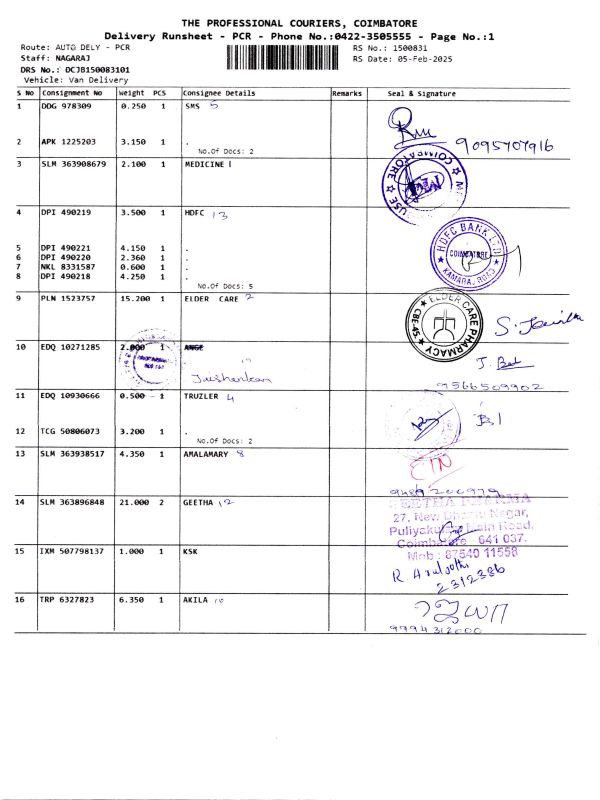 THE PROFESSIONAL COURIERS, COIMBATORE
Delivery Runsheet - PCR - Phone No.:0422-3505555 - Page No.:1
Route: AUTO DELY - PCR
RS No.: 1500831
Staff: NAGARAJ
RS Date: 05-Feb-2025
DRS No.: DCJB150083101
Vehicle: Van Delivery
S No Consignment No Weight PCS Consignee Details Remarks Seal & Signature
1 DDG 978309 0.250 1 SMS 5
2 APK 1225203 3.150 1 . 9095707916
No.Of Docs: 2
3 SLM 363908679 2.100 1 MEDICINE 1
COIMBATORE
4 DPI 490219 3.500 1 HDFC 13
HDFC BANK LTD
COIMBATORE
KAMARAJ ROAD
5 DPI 490221 4.150 1 .
6 DPI 490220 2.360 1 .
7 NKL 8331587 0.600 1 .
8 DPI 490218 4.250 1 .
No.Of Docs: 5
9 PLN 1523757 15.200 1 ELDER CARE 2
ELDER CARE PHARMACY
CBE-45
10 EDQ 10271285 2.000 1 ANGE
9566509902
11 EDQ 10930666 0.500 1 TRUZLER 4
12 TCG 50806073 3.200 1 .
No.Of Docs: 2
13 SLM 363938517 4.350 1 AMALAMARY 8
14 SLM 363896848 21.000 2 GEETHA 12
GEETHA PHARMA
27, New Nagar,
Puliyaku Main Road,
Coimbatore 641 037.
Mob: 87540 11558
15 IXM 507798137 1.000 1 KSK
R Aruljothi
2312386
16 TRP 6327823 6.350 1 AKILA 10
9994312000